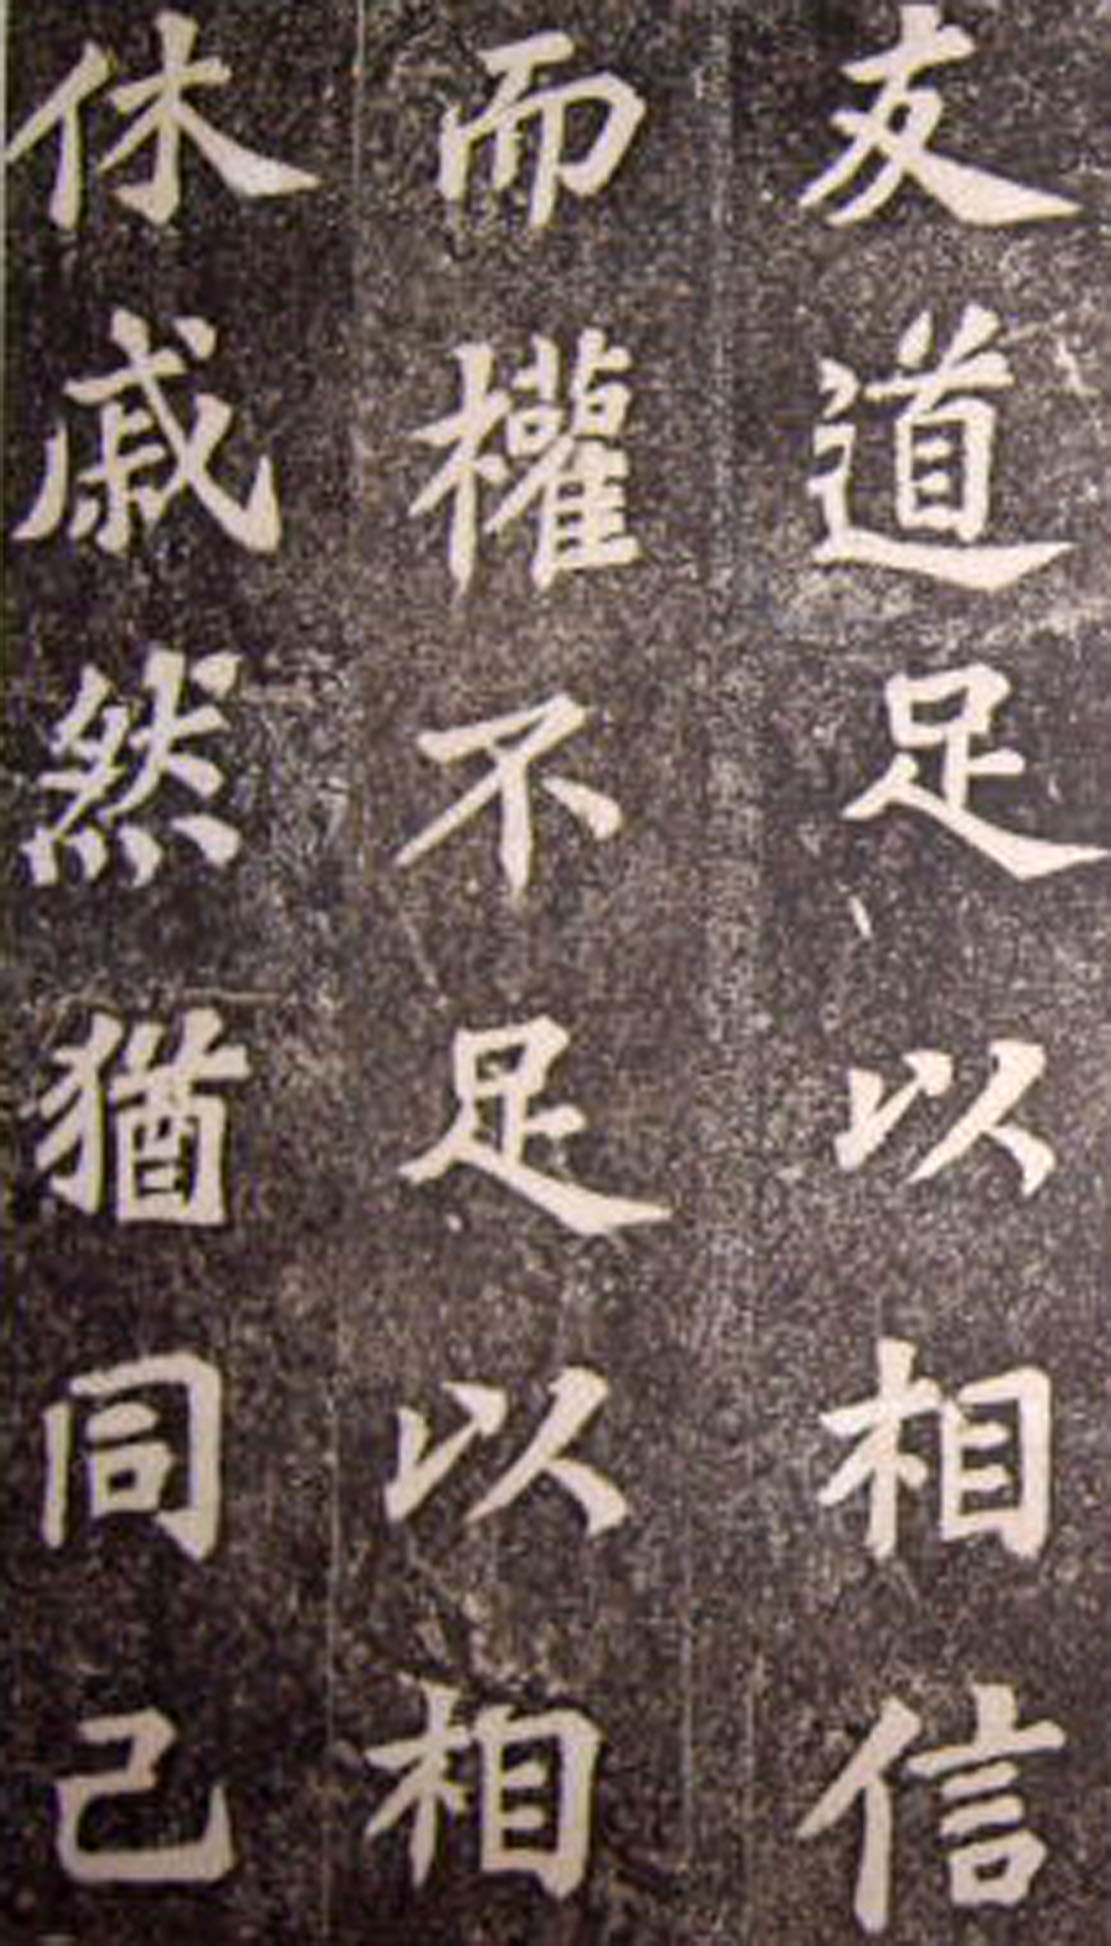 友道足以相信
而權不足以相
休戚然猶同己